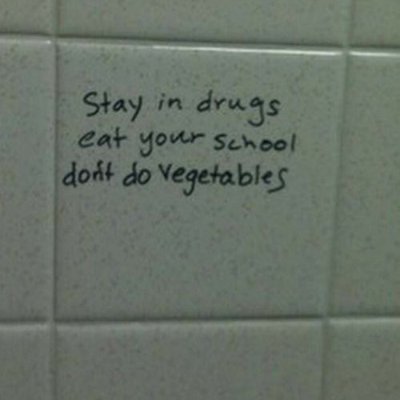 Stay in drugs
eat your school
don't do vegetables